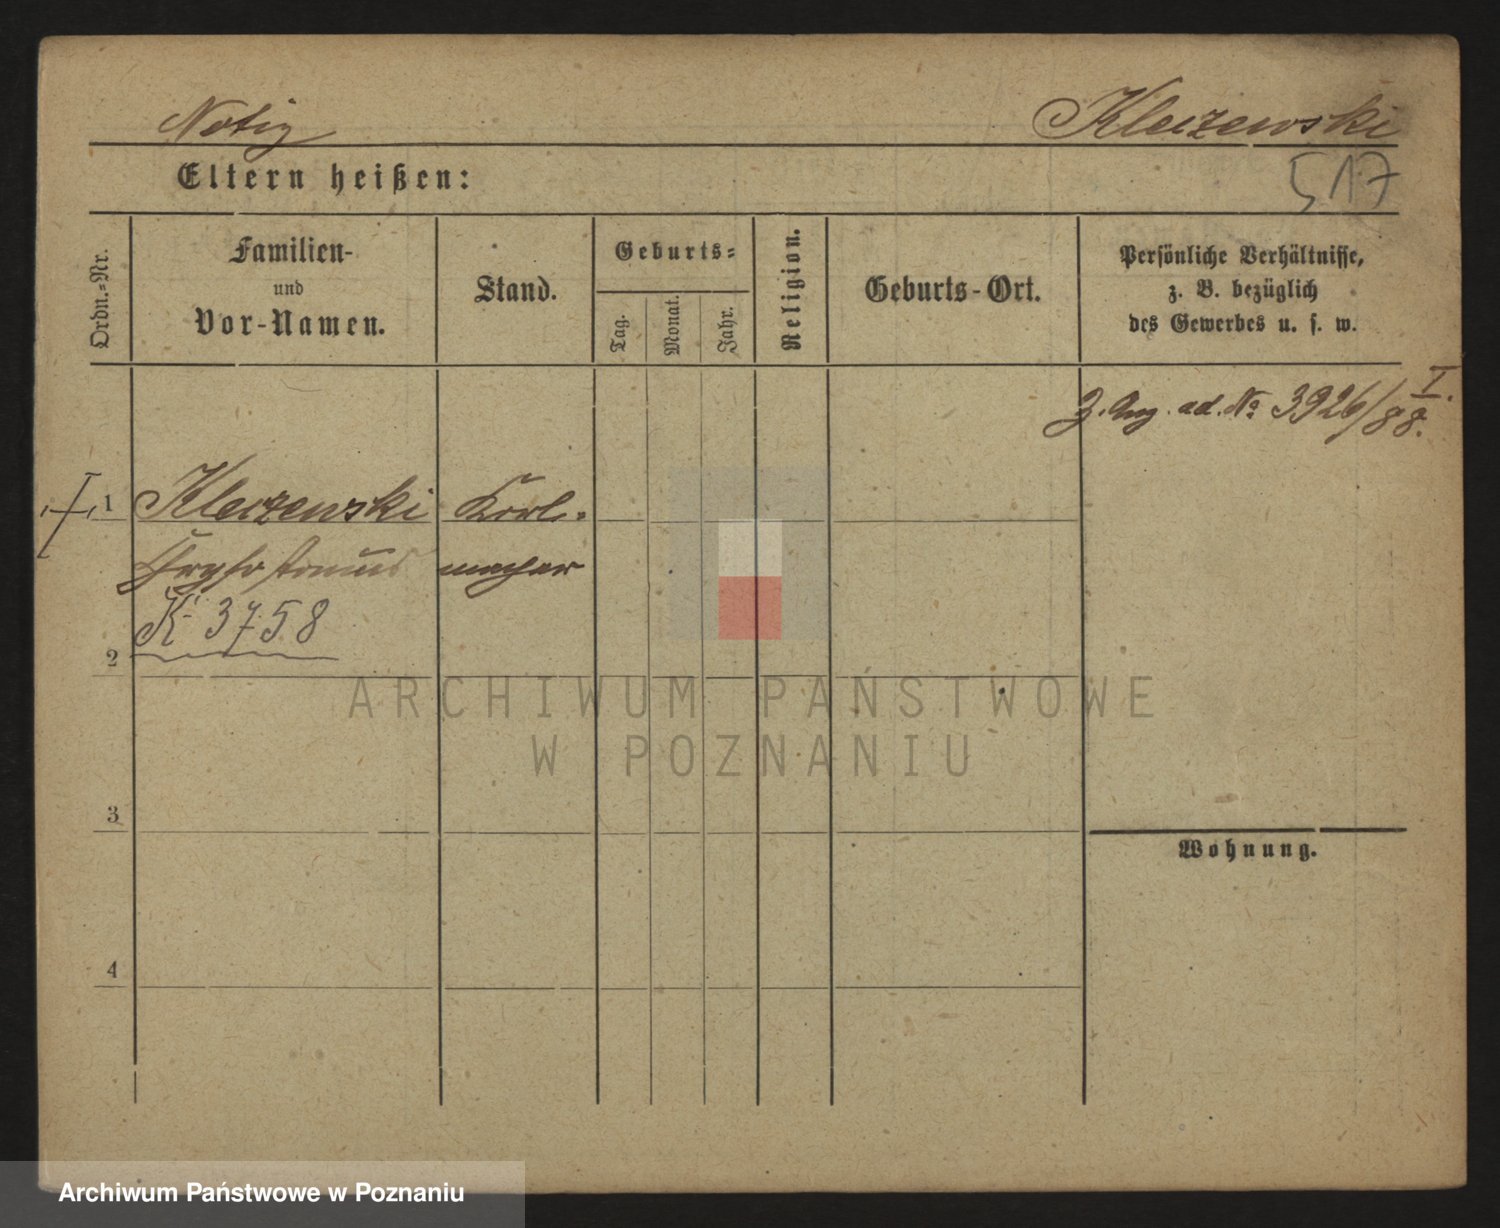 Notiz
Kleczewski
517
Eltern heißen:
Ordn.-Nr.
Familien-
und
Vor-Namen.
Stand.
Geburts-
Tag.
Monat.
Jahr.
Religion.
Geburts-Ort.
Persönliche Verhältnisse,
z. B. bezüglich
des Gewerbes u. s. w.
ad. No 3926/88. I.
1 Kleczewski
Chrysostomus
K 3758
Korb-
macher
2
3
4
Wohnung.
ARCHIWUM PAŃSTWOWE
W POZNANIU
Archiwum Państwowe w Poznaniu